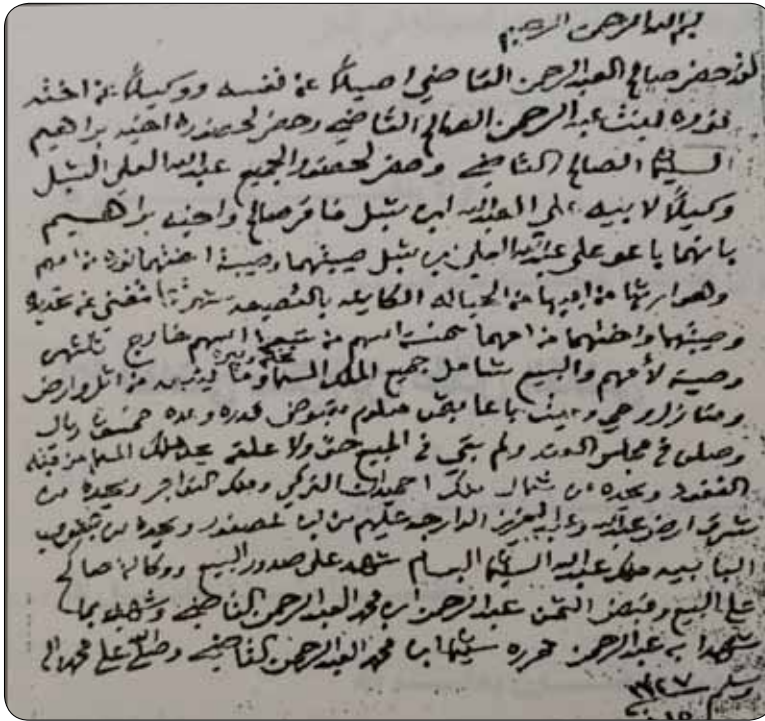 بسم الله الرحمن الرحيم
لقد حضر صالح العبد الرحمن القاضي اصيلاً عن نفسه ووكيلاً عن اخته
نوره بنت عبد الرحمن الصالح القاضي وحضر لحضوره اخيه براهيم
السليمان الصالح القاضي وحضر لحضور الجميع عبد الله العلي الشبل
وكيلاً لابيه علي العبد الله ابن شبل فاقر صالح واخيه براهيم
بانهما باعو على عبد الله العلي بن شبل صيبتهما وصيبة اختهما نوره من امهم
وهو ارثها من ابيها من الحياله بشهرتها تغني عن تحديد
وصيبتهما واختهما من امهما خمسة اسهم من اسهم خارج
وصية لأمهم والبيع شامل جميع الملك المسما وما يتبعه من اثل وارض
ومنازل وحي وميت باعا بثمن معلوم مقبوض قدره وعده ريال
وصلن في مجلس العقد ولم بقي في المبيع حق ولا علقه يحد الملك المسما من قبله
النفود ويحده من شمال ملك التركي وملك ويحده من
شرق ارض عبد الله وعبد العزيز الدارجه عليهم من ويحده من جنوب
ملك عبد الله السليمان البسام شهد على صدور البيع ووكالة صالح
على البيع وقبض الثمن عبد الرحمن ابن محمد العبد الرحمن القاضي وشهد بما
شهد به عبد الرحمن حرره سليمان ابن محمد العبد الرحمن القاضي وصلى الله على محمد
وسلم ١٣٢٧